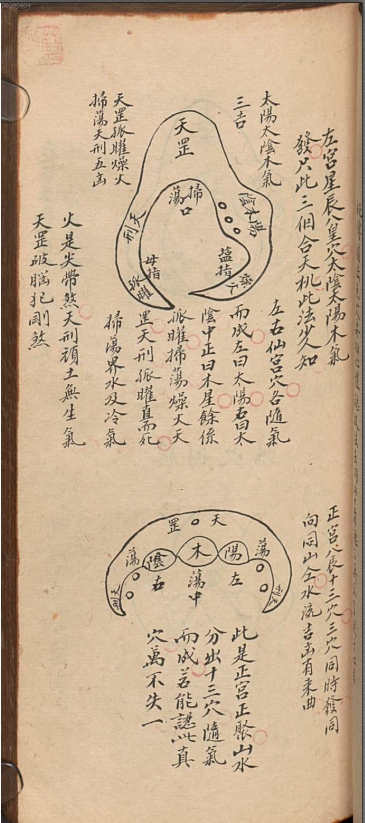 左宮星辰八皇穴太陰太陽木氣
發只此三個合天機此法少人知
太陽太陰木氣
三吉
天罡孤曜燥火
掃蕩天刑五凶
天罡
掃蕩口
陰木陽
天刑
燥火
孤曜
拇指
鹽指
左右仙宮穴各隨氣
而成左曰太陽右曰太
陰中正曰木星餘係
孤曜掃蕩燥火天
罡天刑孤曜直而死
掃蕩界水及冷氣
火是尖帶煞天刑頑土無生氣
天罡破腦犯剛煞
正宮八辰十三穴三穴同時發同
向同山仝水流吉凶有来曲
天罡
蕩
陽
木
陰
蕩
左
蕩中
右
天刑
天刑
此是正宮正聚山水
分出十三穴隨氣
而成若能認此真
穴萬不失一